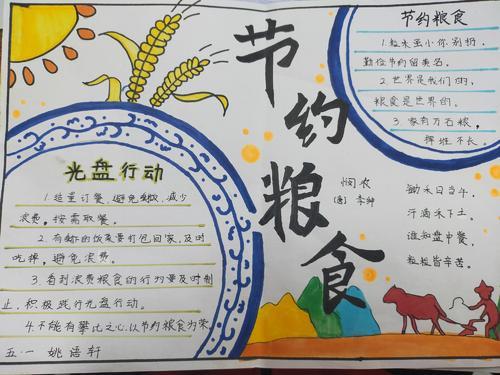 节约粮食
光盘行动
1.适量订餐,避免剩餐,减少
浪费。按需取餐。
2.有剩的饭菜要打包回家,及时
吃掉,避免浪费。
3.看到浪费粮食的行为要及时制
止,积极践行光盘行动。
4.不能有攀比之心,以节约粮食为荣
五·一 姚语轩
节约粮食
1.粒米虽小你别扔,
勤俭节约留美名。
2.世界是我们的,
粮食是世界的。
3.家有万石粮,
挥堆不长。
悯农
[唐] 李绅
锄禾日当午,
汗滴禾下土。
谁知盘中餐,
粒粒皆辛苦。